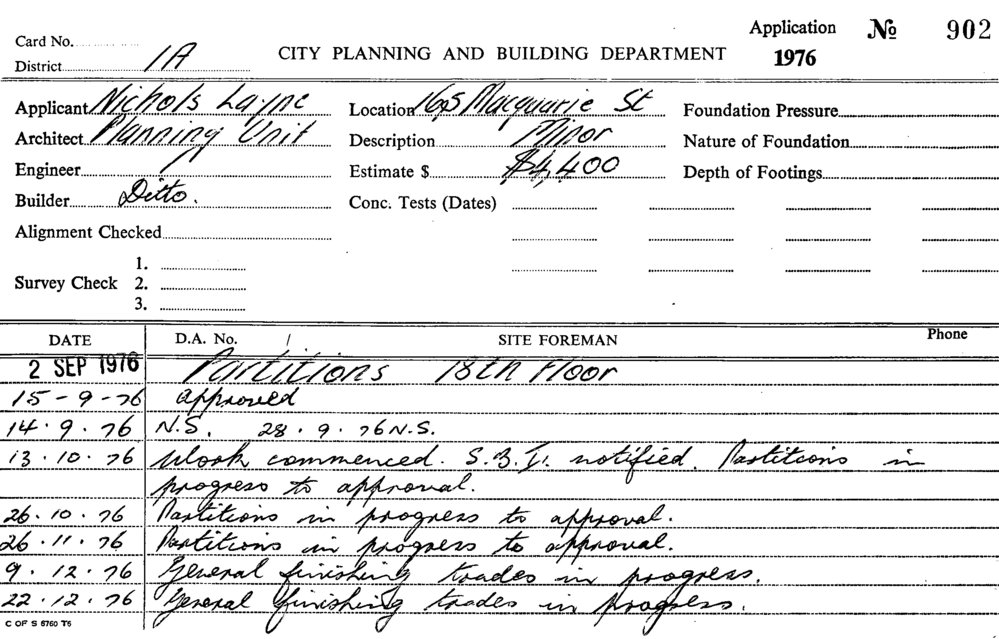 Application No 902
Card No.
District 1A
CITY PLANNING AND BUILDING DEPARTMENT
1976
Applicant Nichols Layne
Location 165 Macquarie St
Foundation Pressure
Architect Planning Unit
Description Minor
Nature of Foundation
Engineer
Estimate $ $4,400
Depth of Footings
Builder Ditto.
Conc. Tests (Dates)
Alignment Checked
1.
Survey Check 2.
3.
DATE D.A. No. / SITE FOREMAN Phone
2 SEP 1976 Partitions 18th Floor
15-9-76 approved
14.9.76 N.S. 28.9.76 N.S.
13.10.76 Work commenced. S.B.I. notified. Partitions in
progress to approval.
26.10.76 Partitions in progress to approval.
26.11.76 Partitions in progress to approval.
9.12.76 General finishing trades in progress.
22.12.76 General finishing trades in progress.
C OF S 6760 T5